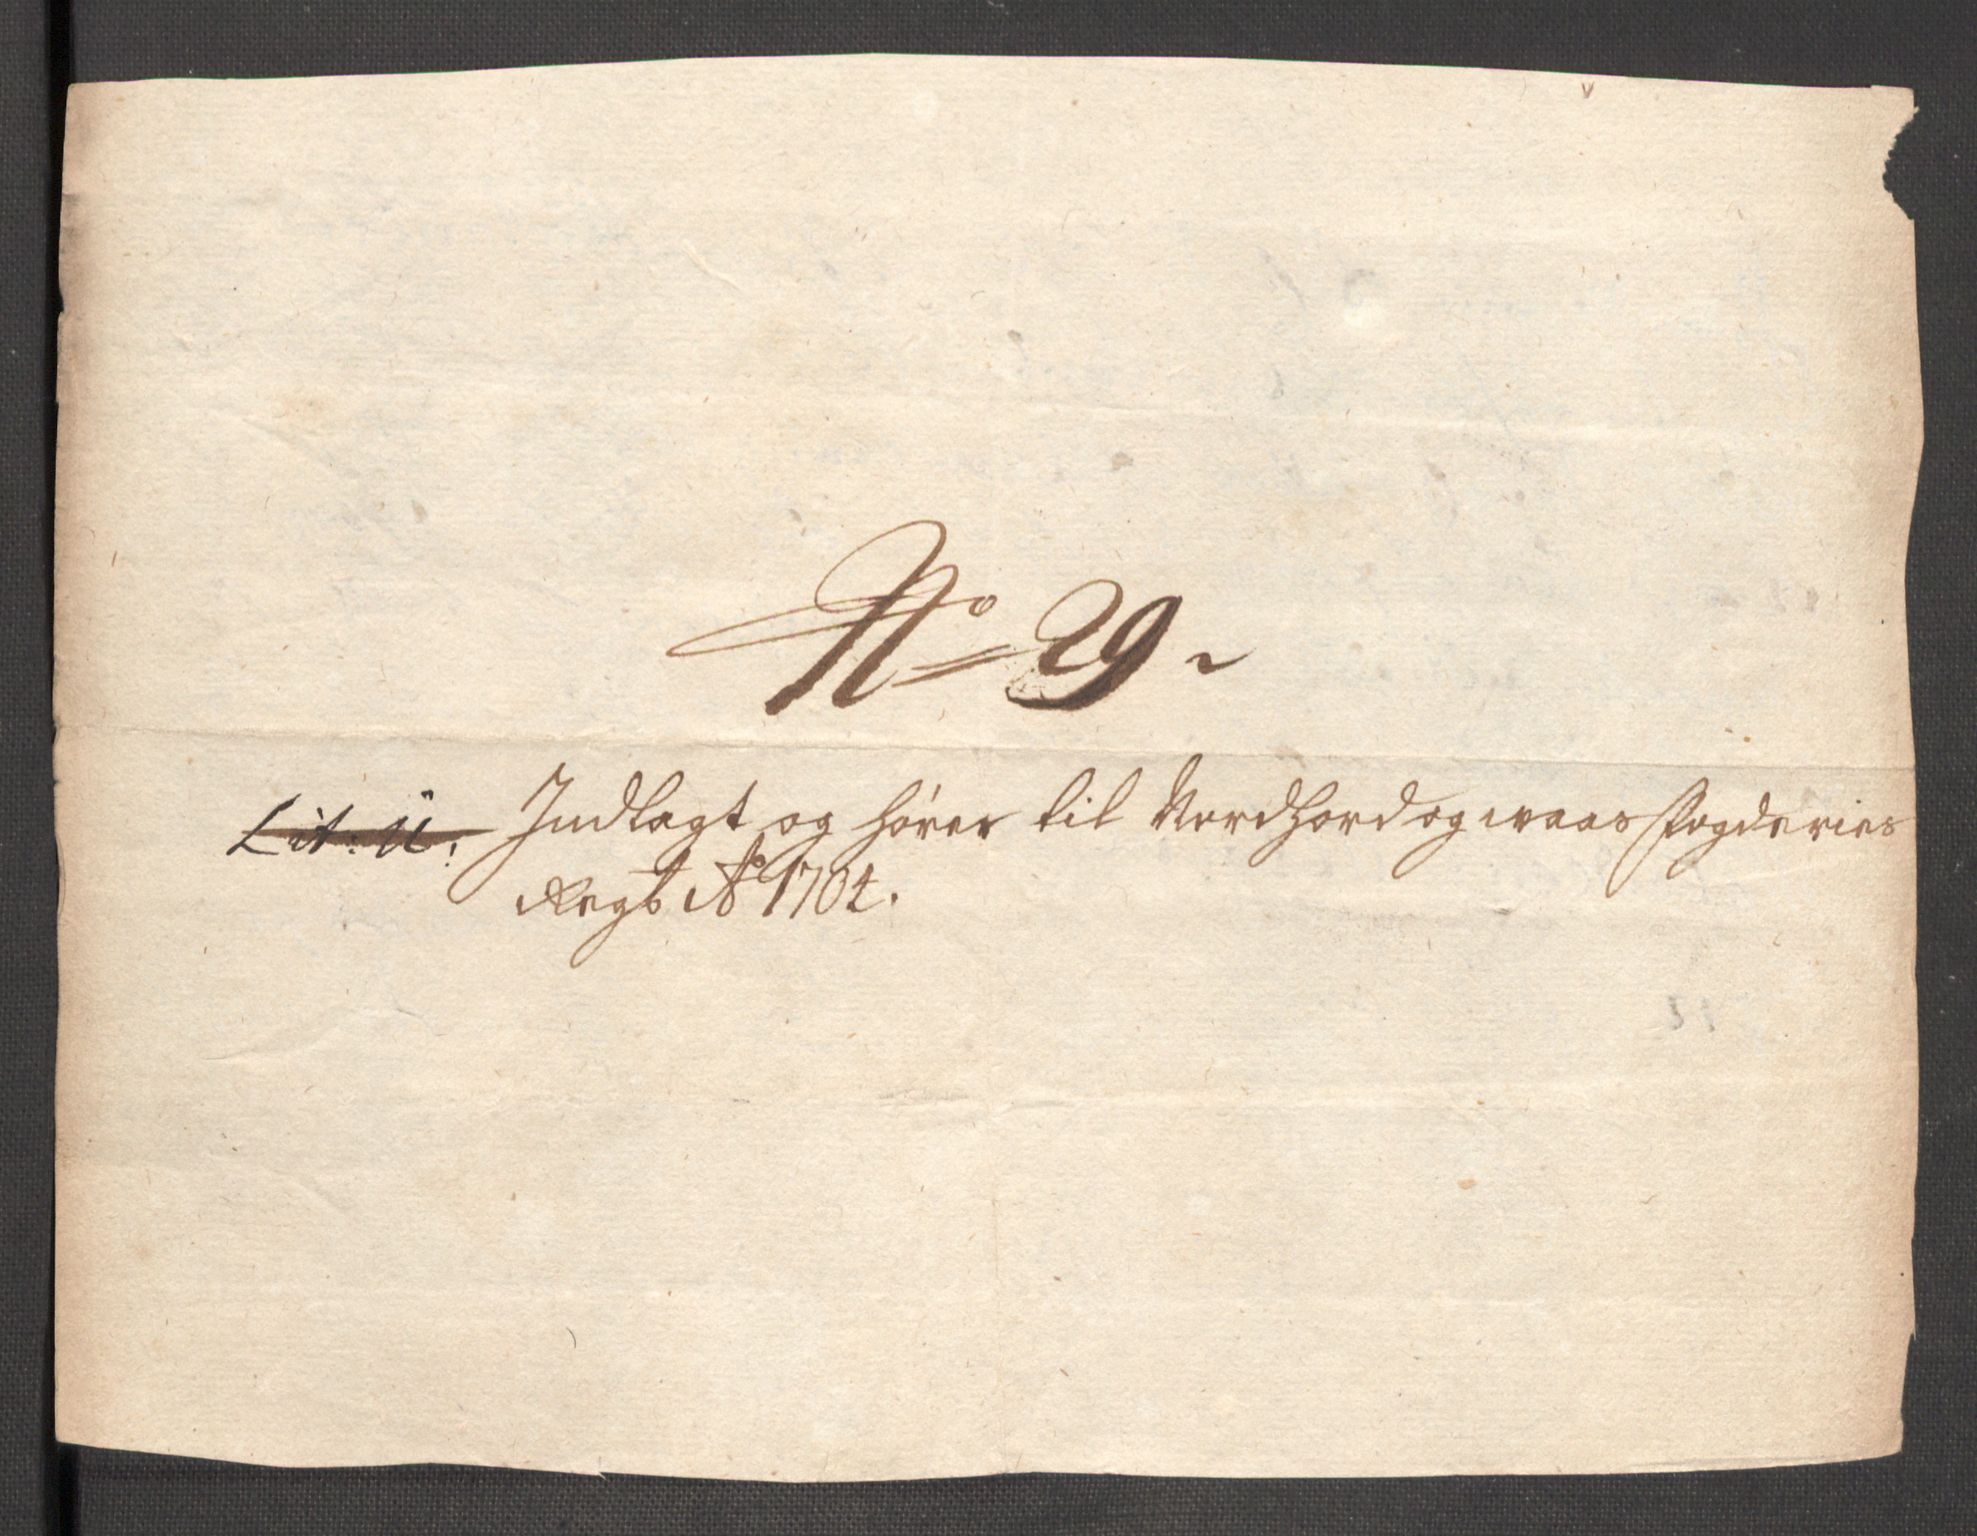 No 29.
Lit: U: Indlagt og hører til Nordhord og waas fogderies
Regb Ao 1704.